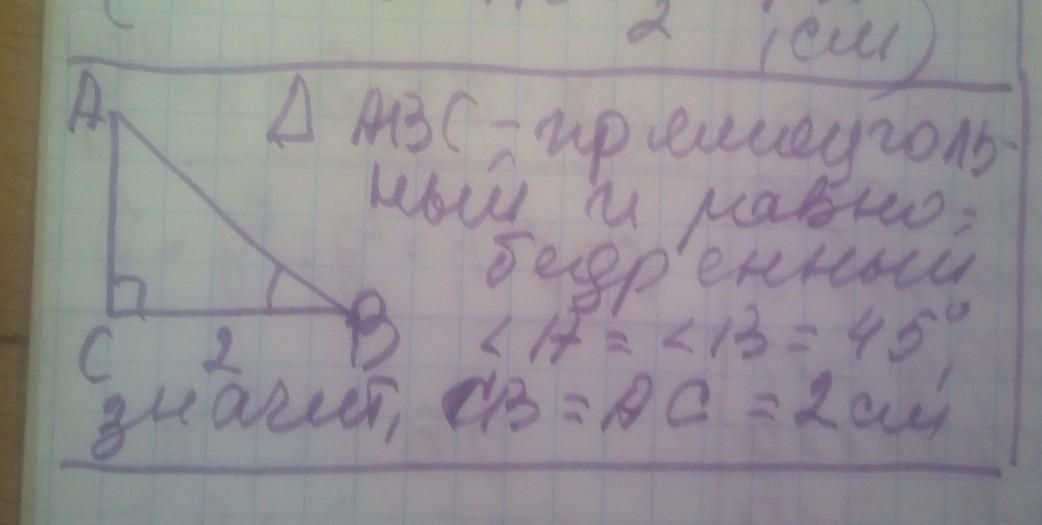 2 (см)
A
Δ ABC - прямоуголь-
ный и равно-
бедренный
<A = <B = 45°,
C 2 B
значит, CB = AC = 2 см